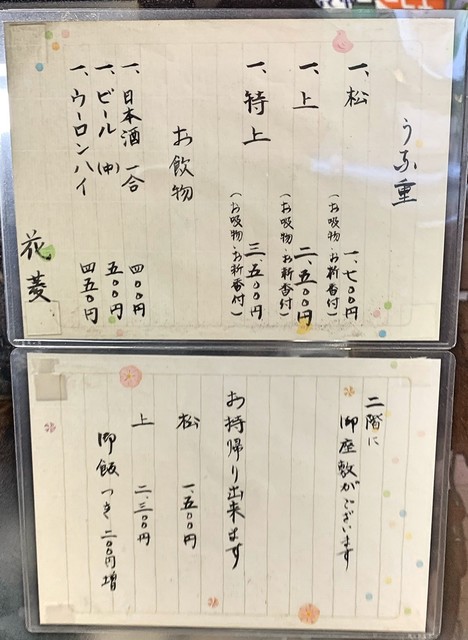 うな重
一、松 一、七〇〇円
(お吸物・お新香付)
一、上 二、五〇〇円
(お吸物・お新香付)
一、特上 三、五〇〇円
(お吸物・お新香付)
お飲物
一、日本酒 一合 四〇〇円
一、ビール (中) 五〇〇円
一、ウーロンハイ 四五〇円
花菱
二階に
御座敷がございます
お持帰り出来ます
松 一、五〇〇円
上 二、三〇〇円
御飯つき二〇〇円増